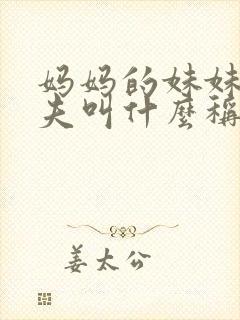 妈妈的妹妹
夫叫什麼稱
姜太公